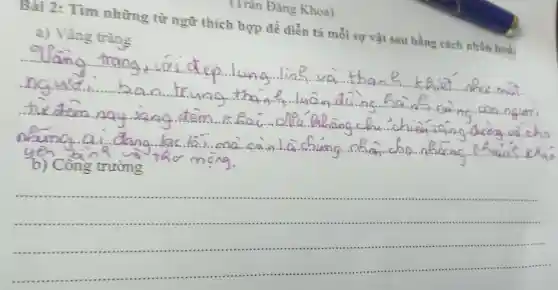 (Trần Đăng Khoa)
Bài 2: Tìm những từ ngữ thích hợp để diễn tả mỗi sự vật sau bằng cách nhân hoá:
a) Vầng trăng
Vầng trăng, với đẹp lung linh và thanh khiết như một
người bạn trung thành, luôn đồng hành cùng con người,
từ đêm này sang đêm khác, nó không chỉ chiếu sáng đường về cho
những ai đang lạc lối, mà còn là chứng nhân cho những khoảnh khắc
yên bình và thơ mộng.
b) Cổng trường